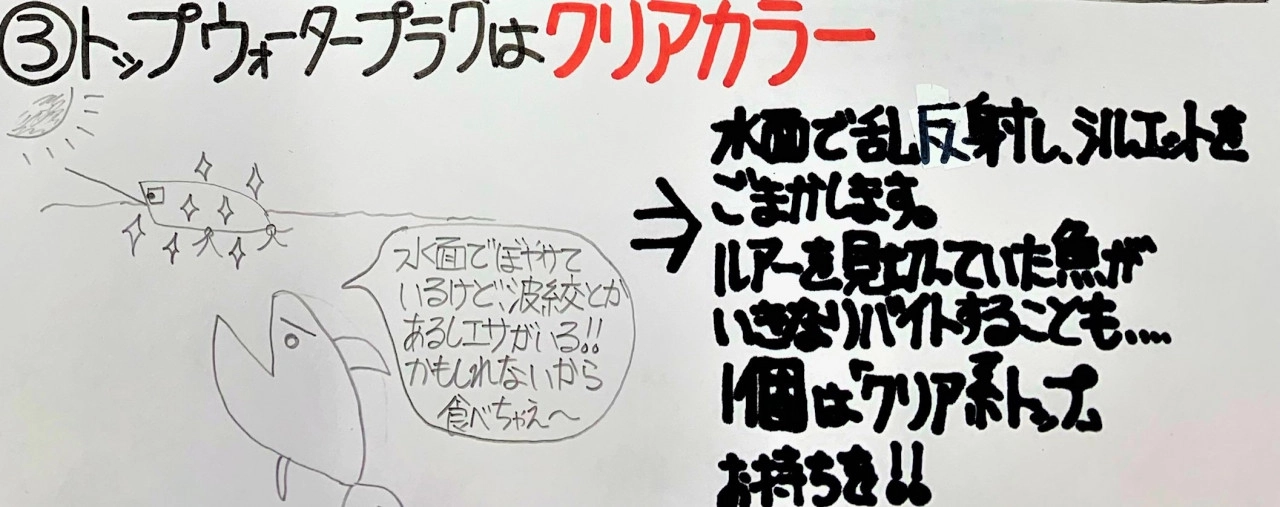 ③トップウォータープラグはクリアカラー
水面でぼやけて
いるけど、波紋とか
あるしエサがいる!!
かもしれないから
食べちゃえ〜
⇒水面で乱反射し、シルエットを
ごまかします。
ルアーを見切っていた魚が
いきなりバイトすることも....
1個は「クリア系トップ」
お持ちを!!